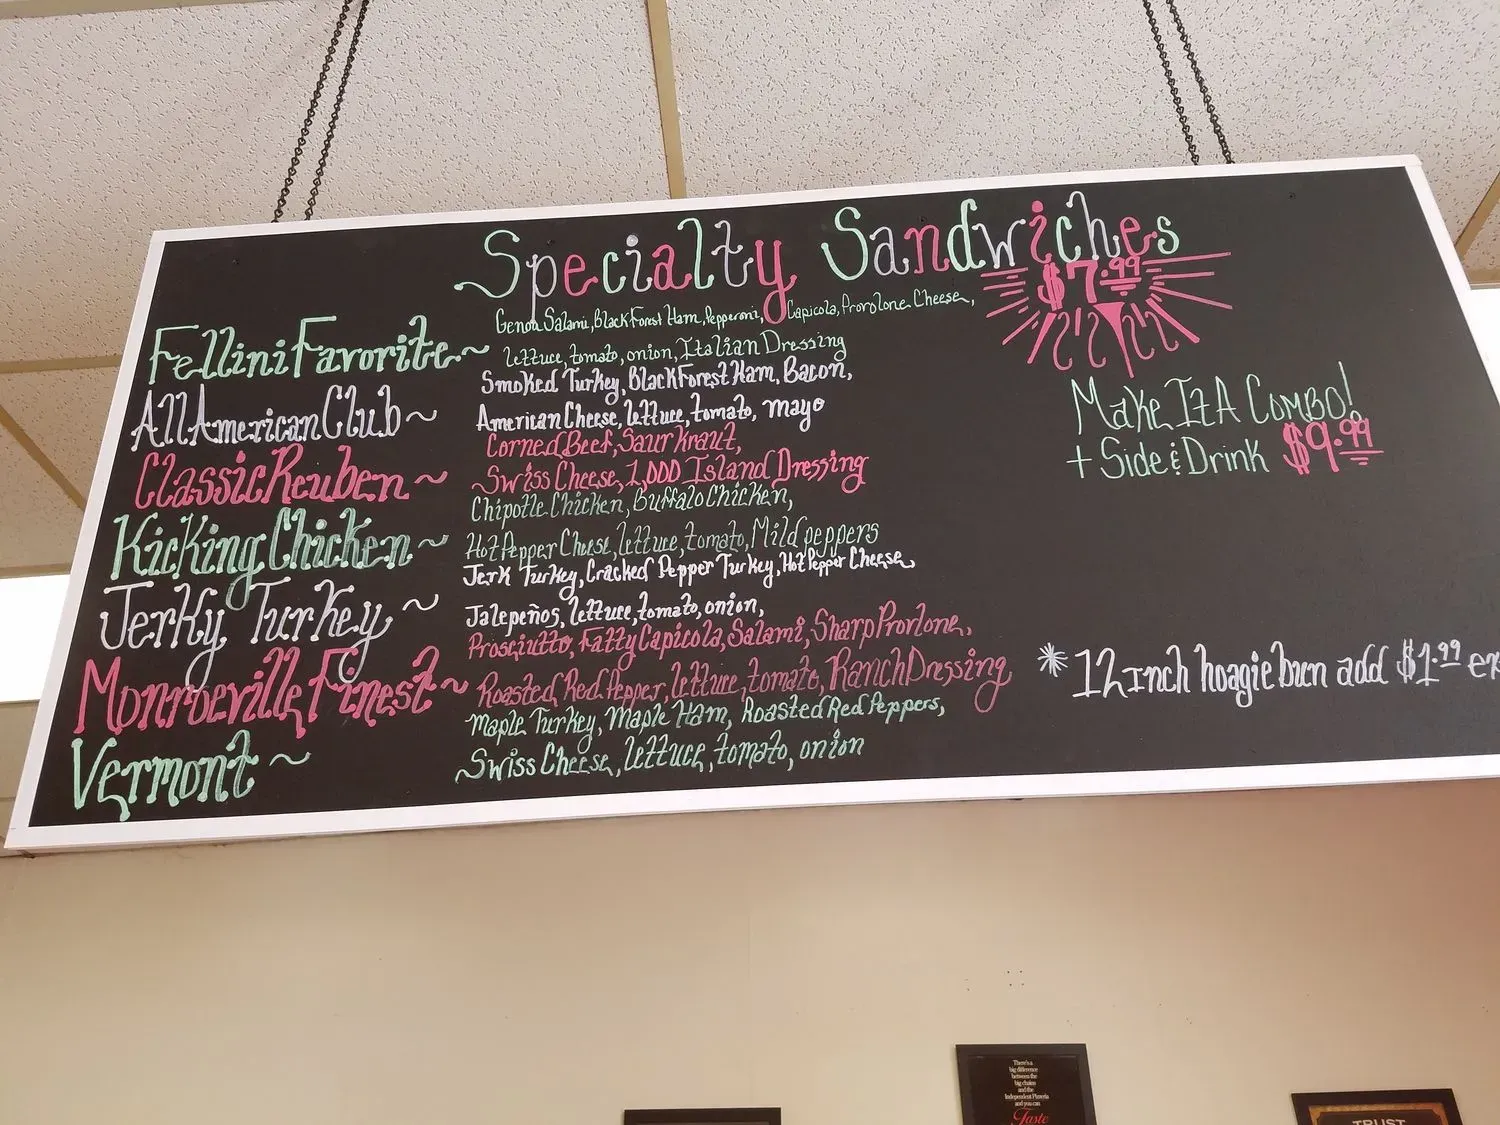 Specialty Sandwiches
$7.99
Fellini Favorite ~ Genoa Salami, Black Forest Ham, Pepperoni, Capicola, Provolone Cheese,
lettuce, tomato, onion, Italian Dressing
All American Club ~ Smoked Turkey, Black Forest Ham, Bacon,
American Cheese, lettuce, tomato, mayo
Classic Reuben ~ Corned Beef, Saur Kraut,
Swiss Cheese, 1,000 Island Dressing
Kicking Chicken ~ Chipotle Chicken, Buffalo Chicken,
Hot Pepper Cheese, lettuce, tomato, Mild peppers
Jerky Turkey ~ Jerk Turkey, Cracked Pepper Turkey, Hot Pepper Cheese,
Jalepeños, lettuce, tomato, onion,
Monroeville Finest ~ Prosciutto, Fatty Capicola, Salami, Sharp Provlone,
Roasted Red Pepper, lettuce, tomato, Ranch Dressing
Vermont ~ Maple Turkey, Maple Ham, Roasted Red Peppers,
Swiss Cheese, lettuce, tomato, onion
Make It A Combo!
+ Side & Drink $9.99
* 12 Inch hoagie bun add $1.99 ex
There's a
big difference
between the
big chains
and the
Independent Pizzeria
and you can
Taste
TRUST